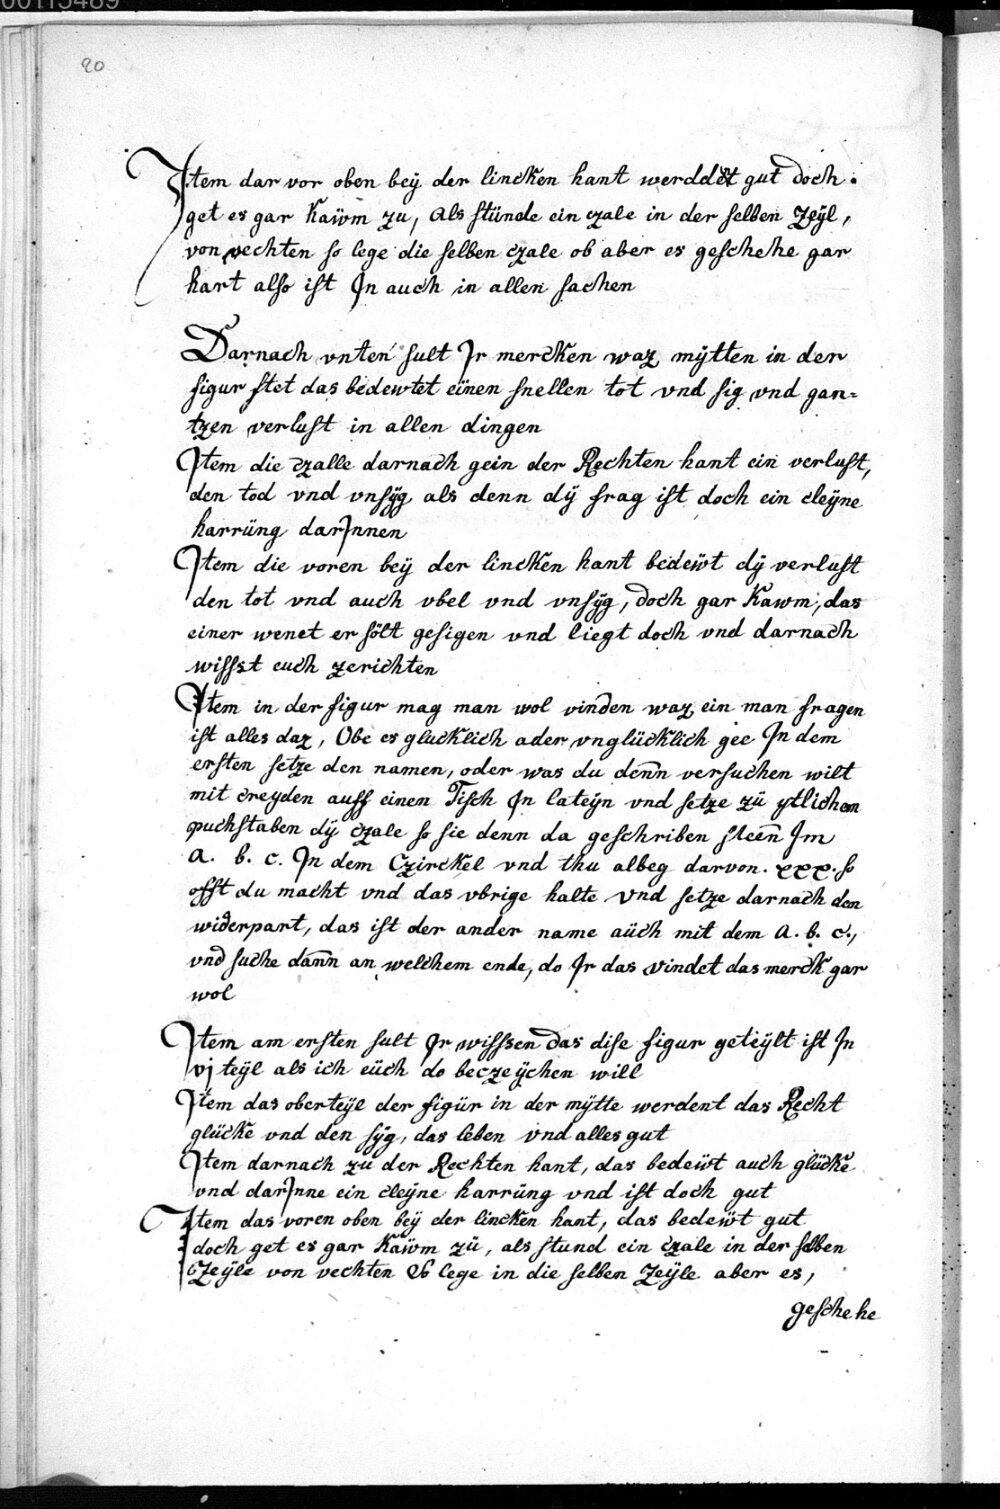 00115489
20
Item dar vor oben beÿ der lincken hant werddet gut doch
get es gar kaẅm zu, als stünde ein czale in der selben zeÿl,
von vechten so lege die selben czale ob aber es geschehe gar
hart also ist Jn auch in allen sachen
Darnach vnten sult Jr mercken waz mÿtten in der
figur stet das bedewtet einen snellen tot vnd sig vnd gan=
tzen verlust in allen dingen
Jtem die czalle darnach gein der Rechten hant ein verlust,
den tod vnd vnsÿg als denn dÿ frag ist doch ein cleÿne
harrüng darJnnen
Jtem die voren beÿ der lincken hant bedeẅt dÿ verlust
den tot vnd auch vbel vnd vnsÿg, doch gar kawm, das
einer wenet er sölt gesigen vnd liegt doch vnd darnach
wissst euch zerichten
Jtem in der figur mag man wol vinden waz ein man fragen
ist alles daz, Obe es glucklich ader vnglücklich gee Jn dem
ersten setze den namen, oder was du denn versuchen wilt
mit creyden auff einen Tisch Jn lateÿn vnd setze zü ÿtlichem
puchstaben dÿ czale so sie denn da geschriben steen Jm
a. b. c. Jn dem Czirckel vnd thu albeg darvon. xxx. so
offt du macht vnd das vbrige halte vnd setze darnach den
widerpart, das ist der ander name aüch mit dem a. b. c.,
vnd suche dann an welchem ende, do Jr das vindet das merck gar
wol
Jtem am ersten sult Jr wisssen das dise figur geteÿlt ist Jn
vj teÿl als ich eüch do beczeÿchen will
Jtem das oberteÿl der figür in der mÿtte werdent das Recht
glücke vnd den sÿg, das leben vnd alles gut
Jtem darnach zü der Rechten hant, das bedeẅt auch glücke
vnd darJnne ein cleÿne harrüng vnd ist doch gut
Jtem das voren oben beÿ der lincken hant, das bedeẅt gut
doch get es gar kaẅm zü, als stund ein czale in der selben
Zeÿle von vechten So lege in die selben Zeÿle aber es,
geschehe